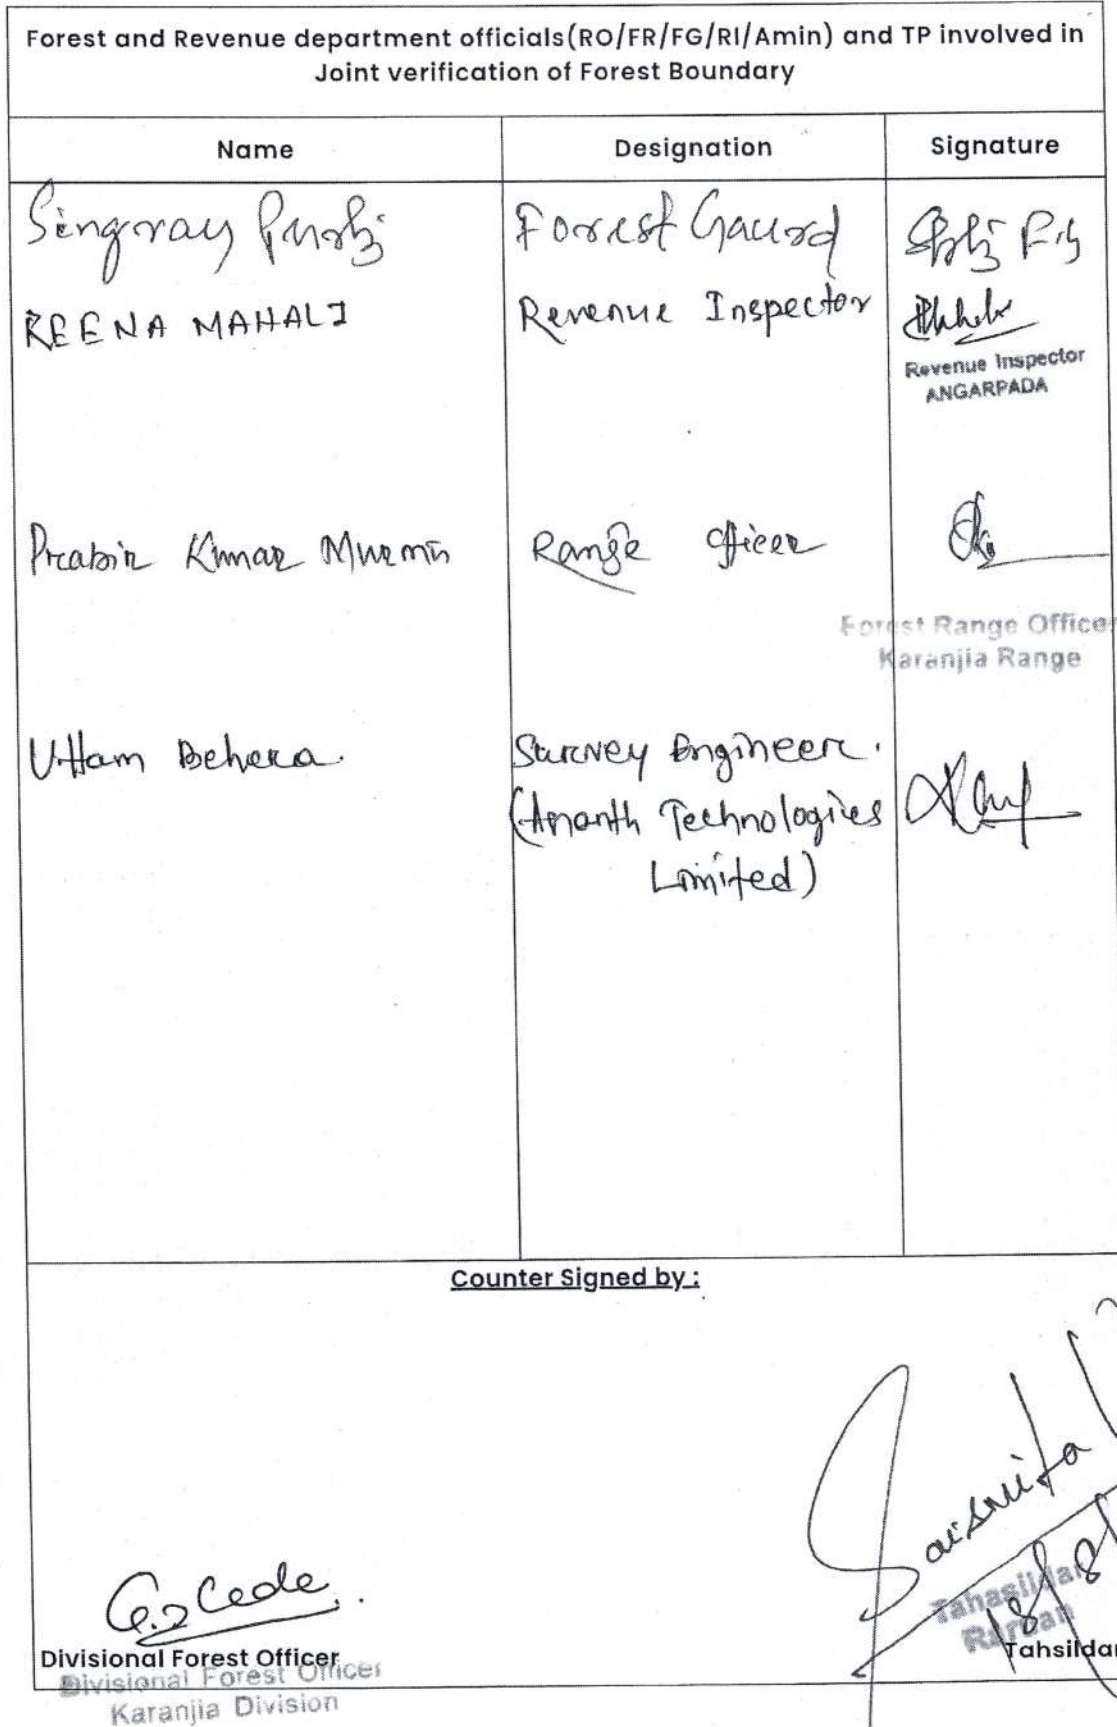 Forest and Revenue department officials(RO/FR/FG/RI/Amin) and TP involved in
Joint verification of Forest Boundary
Name Designation Signature
Singray Forest Gaurd
REENA MAHALI Revenue Inspector
Revenue Inspector
ANGARPADA
Prabir Kumar Murmu Range Officer
Forest Range Officer
Karanjia Range
Uttam Behera. Survey Engineer.
(Ananth Technologies
Limited)
Counter Signed by :
Saismita
18/8/
Tahasildar
Raruan
Divisional Forest Officer Tahsildar
Divisional Forest Officer
Karanjia Division